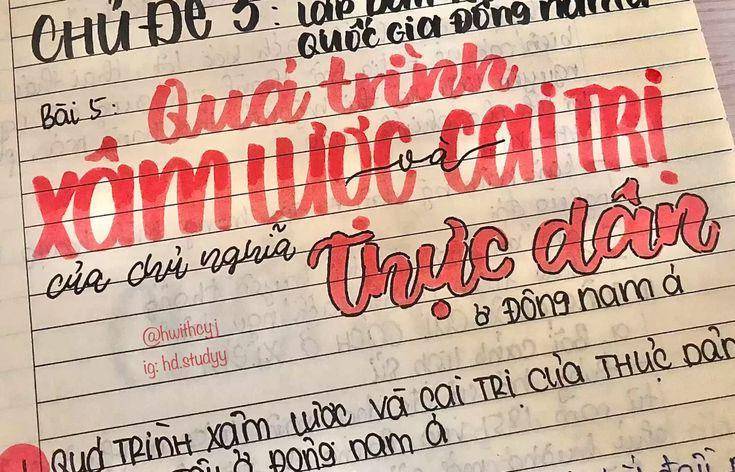 CHỦ ĐỀ 5:
QUỐC GIA ĐÔNG NAM Á
Bài 5: Quá trình
XÂM LƯỢC và CAI TRỊ
của chủ nghĩa Thực dân
ở ĐÔNG NAM Á
@hwithcyj
ig: hd.studyy
QUÁ TRÌNH XÂM LƯỢC VÀ CAI TRỊ CỦA THỰC DÂN
ở ĐÔNG NAM Á